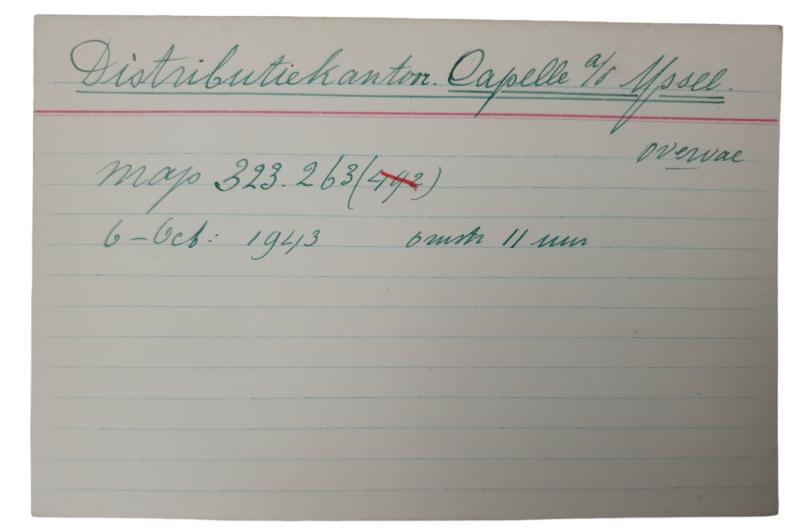 Distributiekantoor. Capelle a/d Yssel.
overval
map 323.263 (492)
6 - Oct: 1943 omstr 11 uur